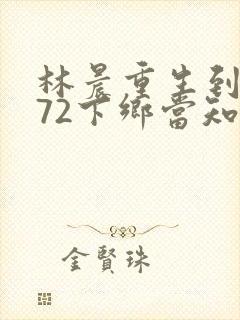 林晨重生到
72下鄉當知
金賢珠